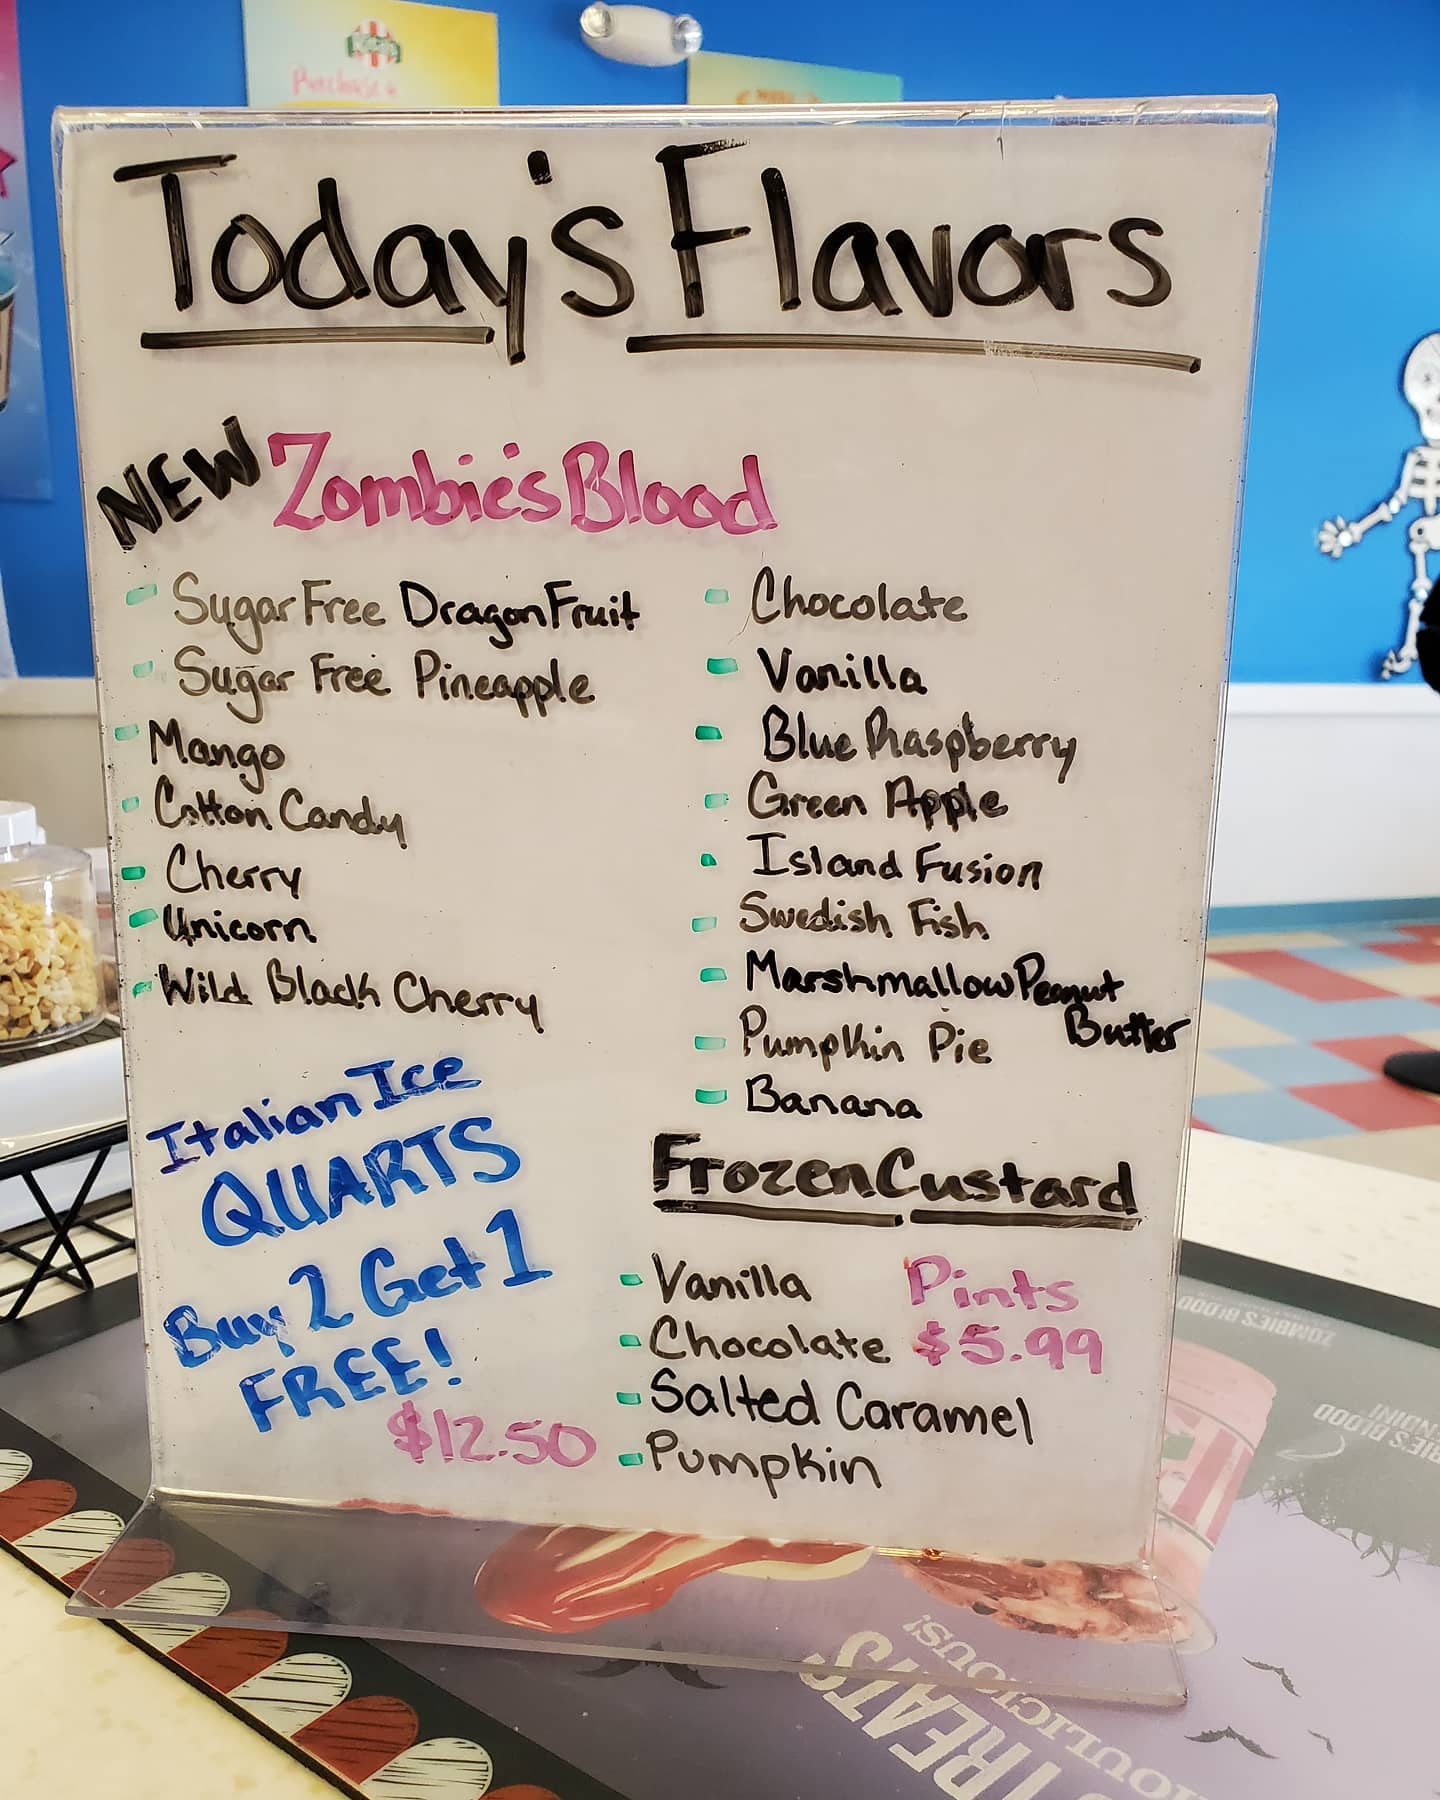 Purchase 4
Today's Flavors
NEW Zombie's Blood
Sugar Free DragonFruit
Sugar Free Pineapple
Mango
Cotton Candy
Cherry
Unicorn
Wild Black Cherry
Chocolate
Vanilla
Blue Raspberry
Green Apple
Island Fusion
Swedish Fish
Marshmallow Peanut
Butter
Pumpkin Pie
Banana
Italian Ice
QUARTS
Buy 2 Get 1
FREE!
$12.50
Frozen Custard
Vanilla
Chocolate
Salted Caramel
Pumpkin
Pints
$5.99
ZOMBIE'S BLOOD
BLOOD
TREATS